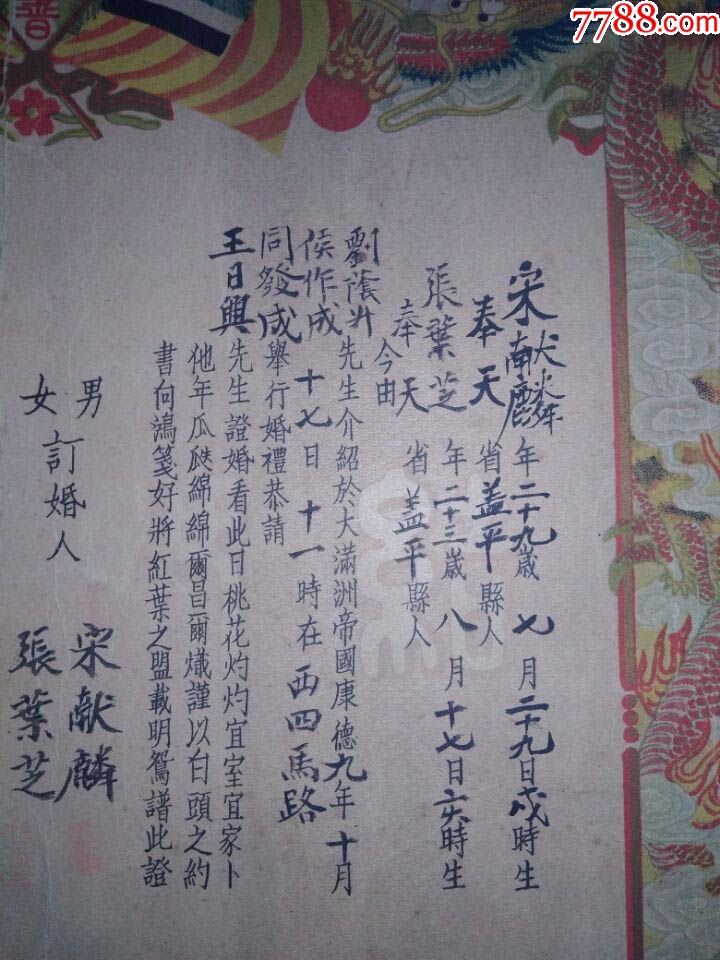 7788.com
普
宋献麟 年二十九歲 七月二十九日戌時生
奉天省盖平縣人
張葉芝 年二十三歲 八月十七日亥時生
奉天省盖平縣人
今由
劉蔭升
侯作成 先生介紹於大滿洲帝國康德九年十月
十七日十一時在西四馬路
同發成 舉行婚禮恭請
王日興 先生證婚看此日桃花灼灼宜室宜家卜
他年瓜瓞綿綿爾昌爾熾謹以白頭之約
書向鴻箋好將紅葉之盟載明鴛譜此證
男
女
訂婚人
宋献麟
張葉芝